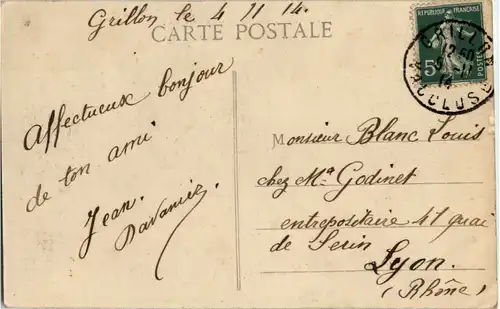 Grillon le 4 11 14.
CARTE POSTALE
REPUBLIQUE FRANÇAISE
5
POSTES
GRILLON
12 50
5-11
14
VAUCLUSE
Affectueux bonjour
de ton ami
Jean.
Monsieur Blanc Louis
chez Mª Godinet
entrepositaire 41 quai
de Serin
Lyon.
(Rhône)